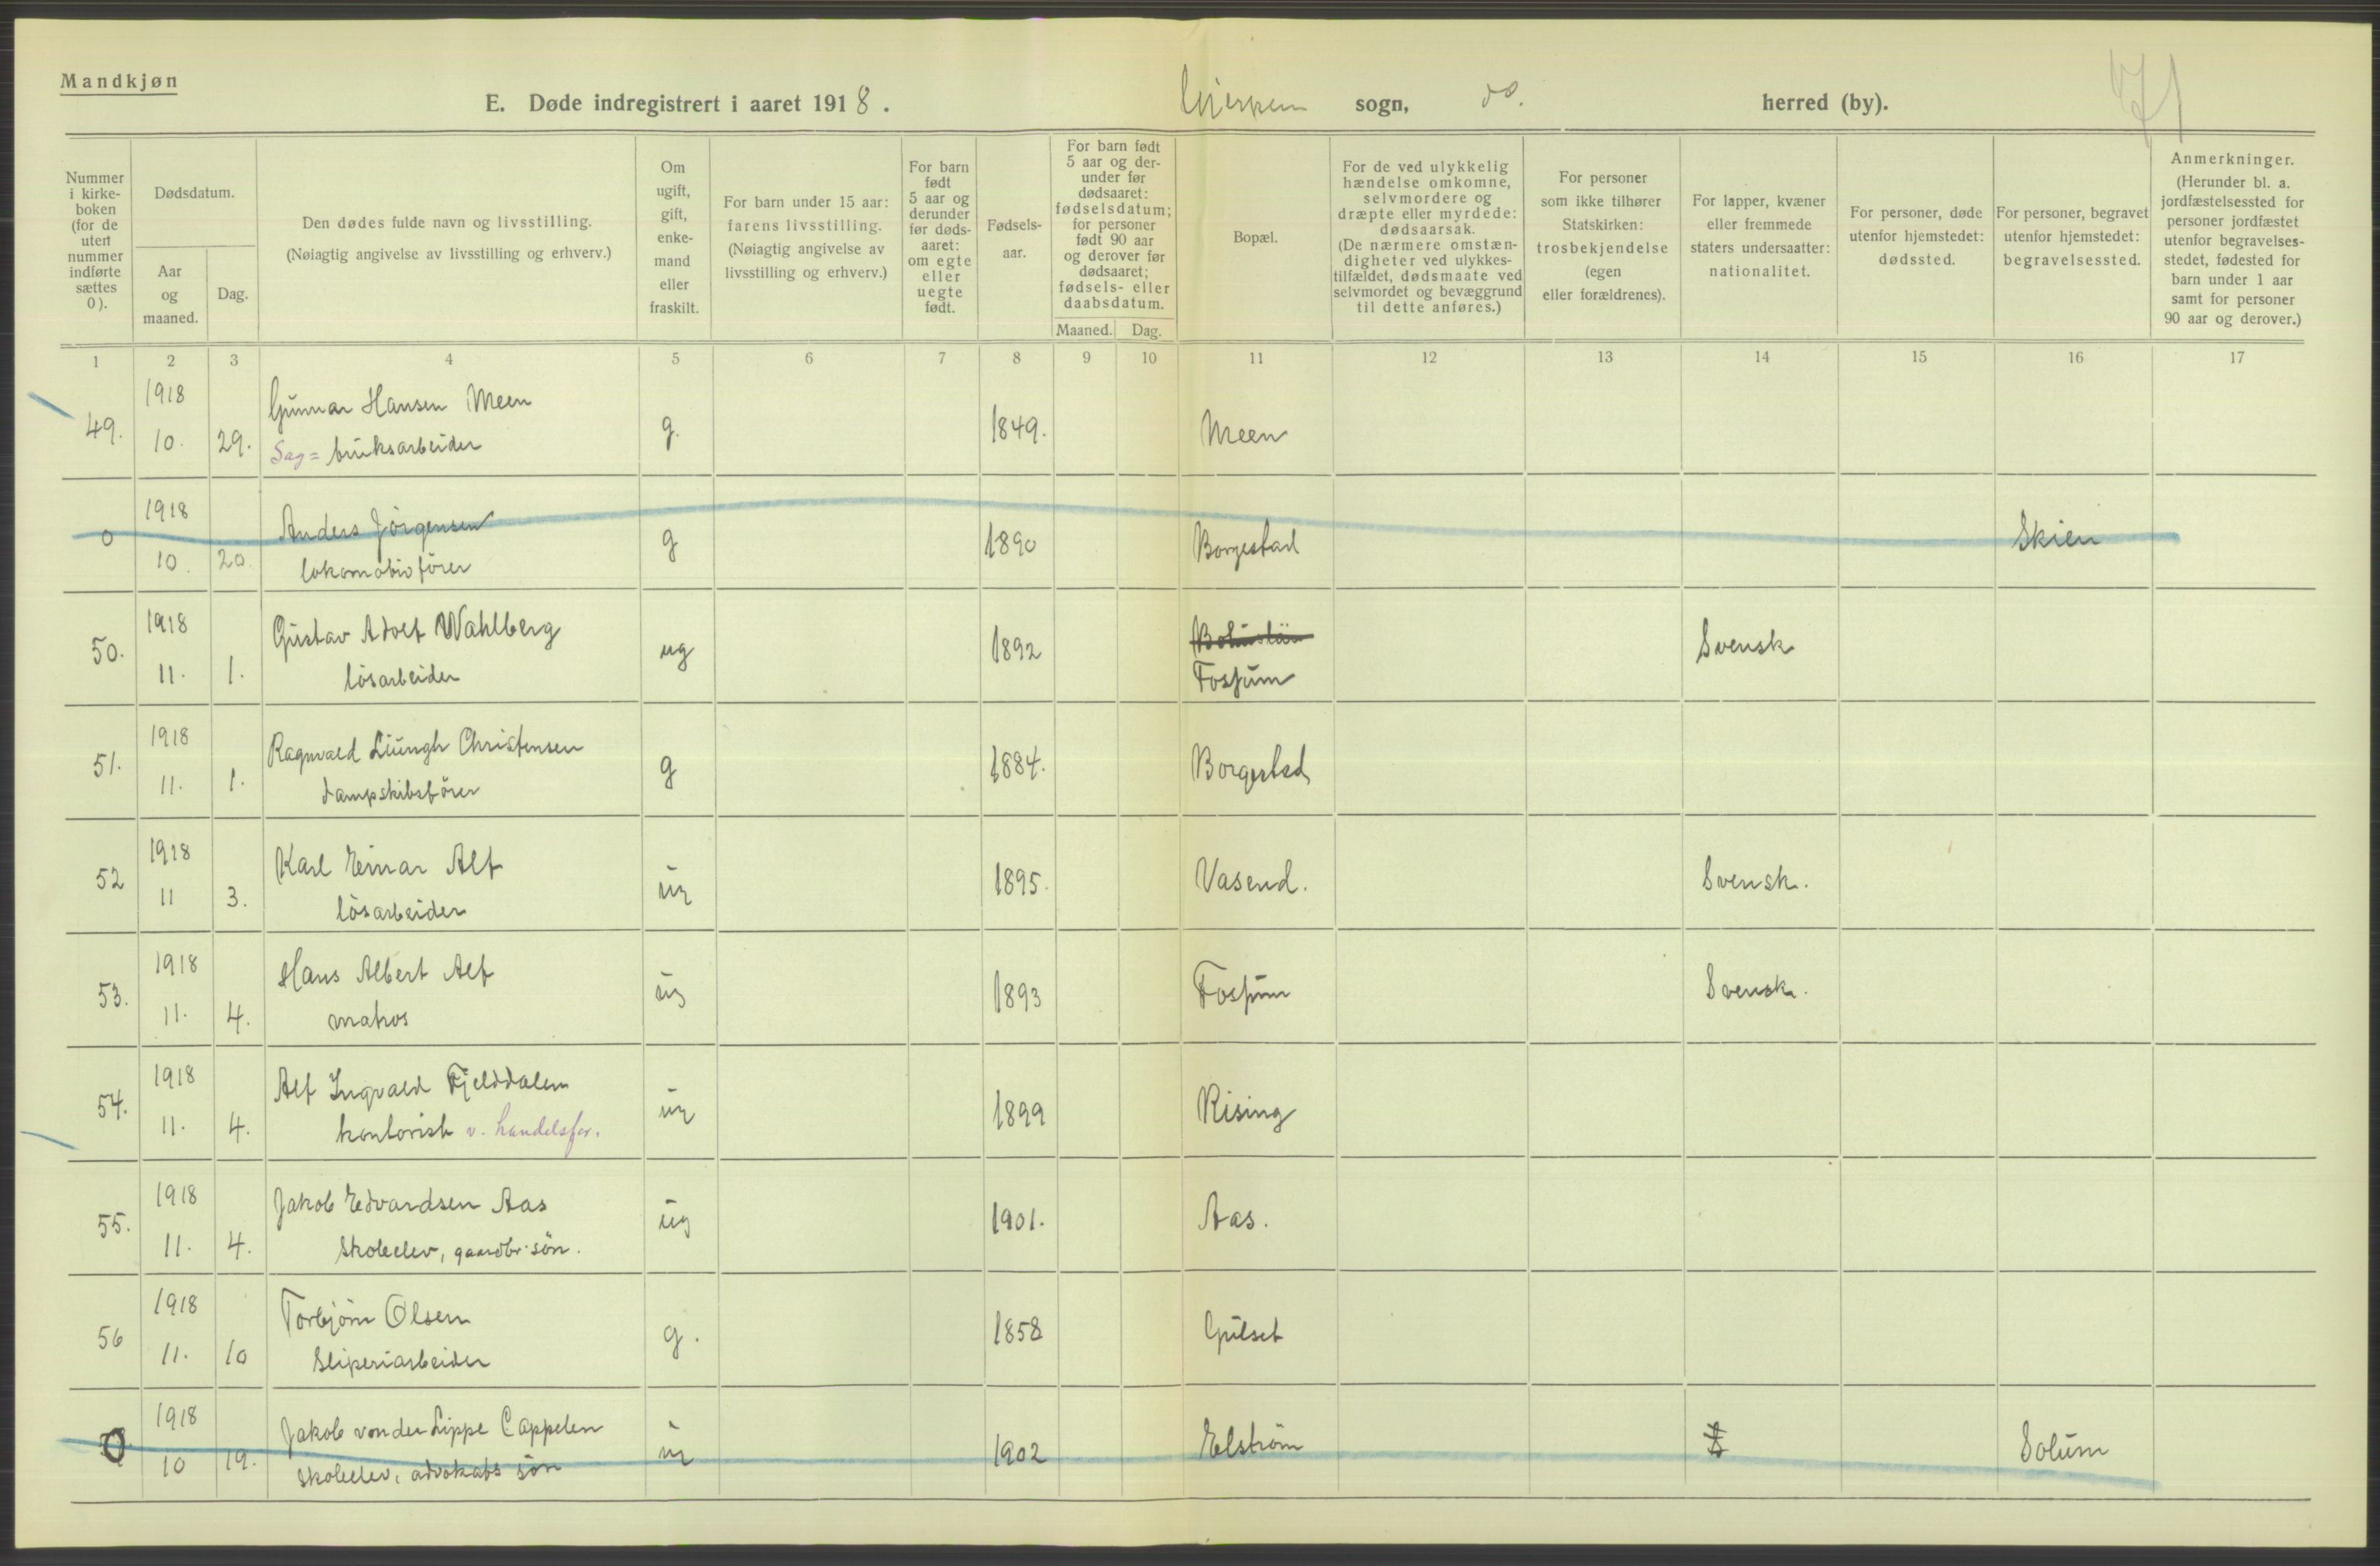 Mandkjøn
E. Døde indregistrert i aaret 1918. Gjerpen sogn, do. herred (by). 71
Nummer i kirke-boken (for de utert nummer indførte sættes 0).
Dødsdatum.
Aar og maaned.
Dag.
Den dødes fulde navn og livsstilling.
(Nøiagtig angivelse av livsstilling og erhverv.)
Om ugift, gift, enke-mand eller fraskilt.
For barn under 15 aar: farens livsstilling.
(Nøiagtig angivelse av livsstilling og erhverv.)
For barn født 5 aar og derunder før døds-aaret: om egte eller uegte født.
Fødsels-aar.
For barn født 5 aar og der-under før dødsaaret: fødselsdatum; for personer født 90 aar og derover før dødsaaret; fødsels- eller daabsdatum.
Maaned. Dag.
Bopæl.
For de ved ulykkelig hændelse omkomne, selvmordere og dræpte eller myrdede: dødsaarsak.
(De nærmere omstæn-digheter ved ulykkes-tilfældet, dødsmaate ved selvmordet og bevæggrund til dette anføres.)
For personer som ikke tilhører Statskirken: trosbekjendelse (egen eller forældrenes).
For lapper, kvæner eller fremmede staters undersaatter: nationalitet.
For personer, døde utenfor hjemstedet: dødssted.
For personer, begravet utenfor hjemstedet: begravelsessted.
Anmerkninger.
(Herunder bl. a. jordfæstelsessted for personer jordfæstet utenfor begravelses-stedet, fødested for barn under 1 aar samt for personer 90 aar og derover.)
1 2 3 4 5 6 7 8 9 10 11 12 13 14 15 16 17
1918 Gunnar Hansen Meen
49. 10. 29. Sag= bruksarbeider g. 1849. Meen
1918 Anders Jörgensen
0 10. 20. lokomotivförer g 1890 Borgestad Skien
1918 Gustav Adolf Wahlberg Bohuslän
50. 11. 1. lösarbeider ug 1892 Fossum Svensk
1918 Ragnvald Ljungh Christensen
51. 11. 1. dampskibsförer g 1884. Borgestad
1918 Karl Einar Alf
52 11 3. lösarbeider ug 1895. Vasend. Svensk.
1918 Hans Albert Alf
53. 11. 4. matros ug 1893 Fossum Svensk.
1918 Alf Ingvald Fjelddalen
54. 11. 4. kontorist v. handelsfor. ug 1899 Rising
1918 Jakob Edvardsen Aas
55. 11. 4. Skoleelev, gaardbr. sön. ug 1901. Aas.
1918 Torbjörn Olsen
56 11. 10 Sliperiarbeider g. 1858 Gulset
1918 Jakob von der Lippe Cappelen
0 10 19. skoleelev, advokats sön ug 1902 Elström Solum